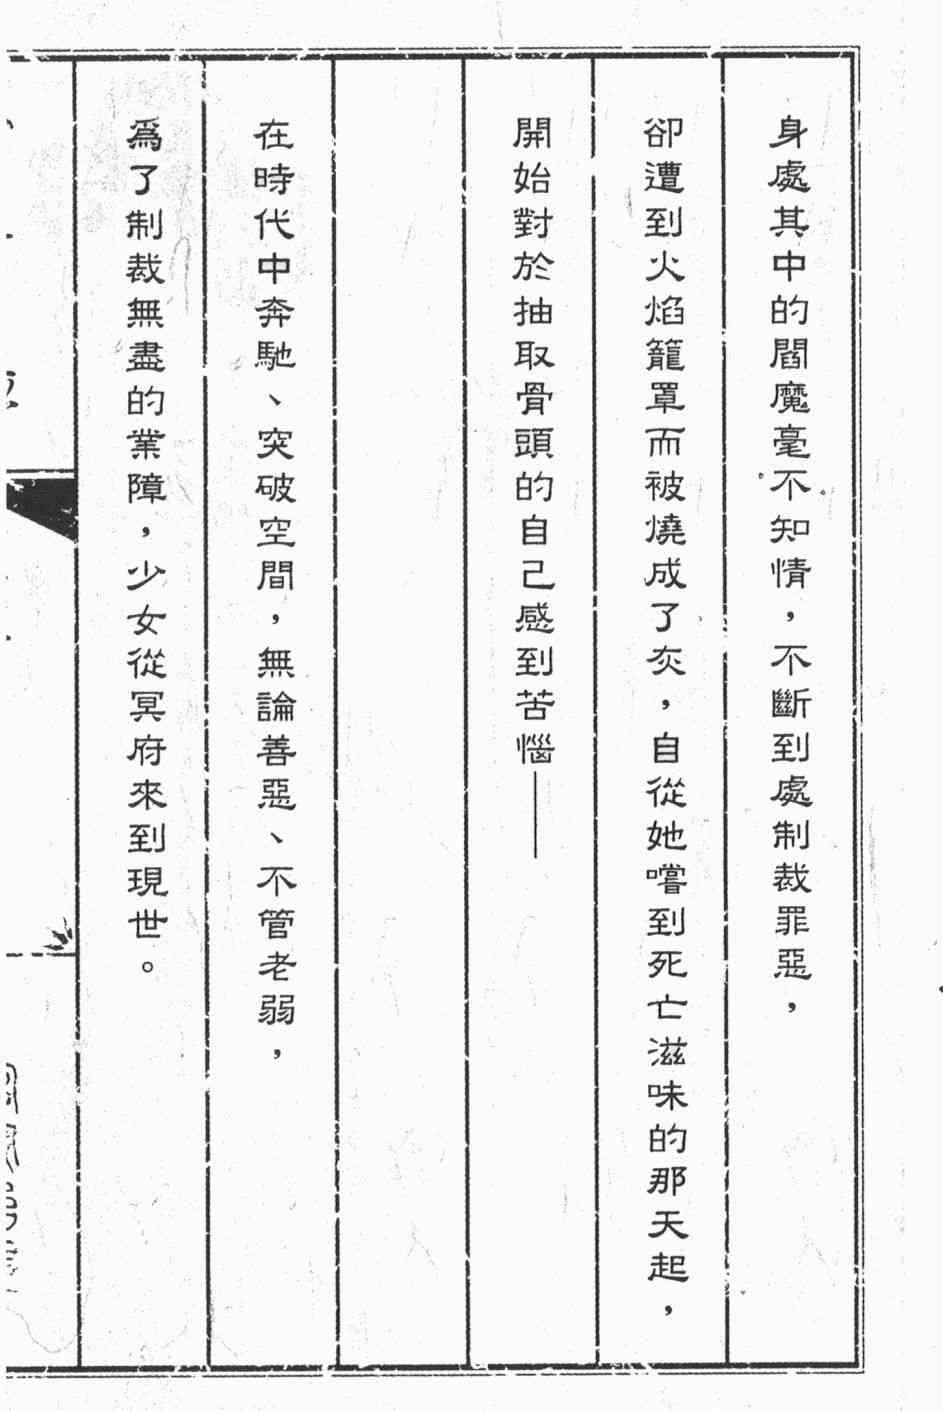 身處其中的閻魔毫不知情，不斷到處制裁罪惡，
卻遭到火焰籠罩而被燒成了灰，自從她嚐到死亡滋味的那天起，
開始對於抽取骨頭的自己感到苦惱——
在時代中奔馳、突破空間，無論善惡、不管老弱，
為了制裁無盡的業障，少女從冥府來到現世。